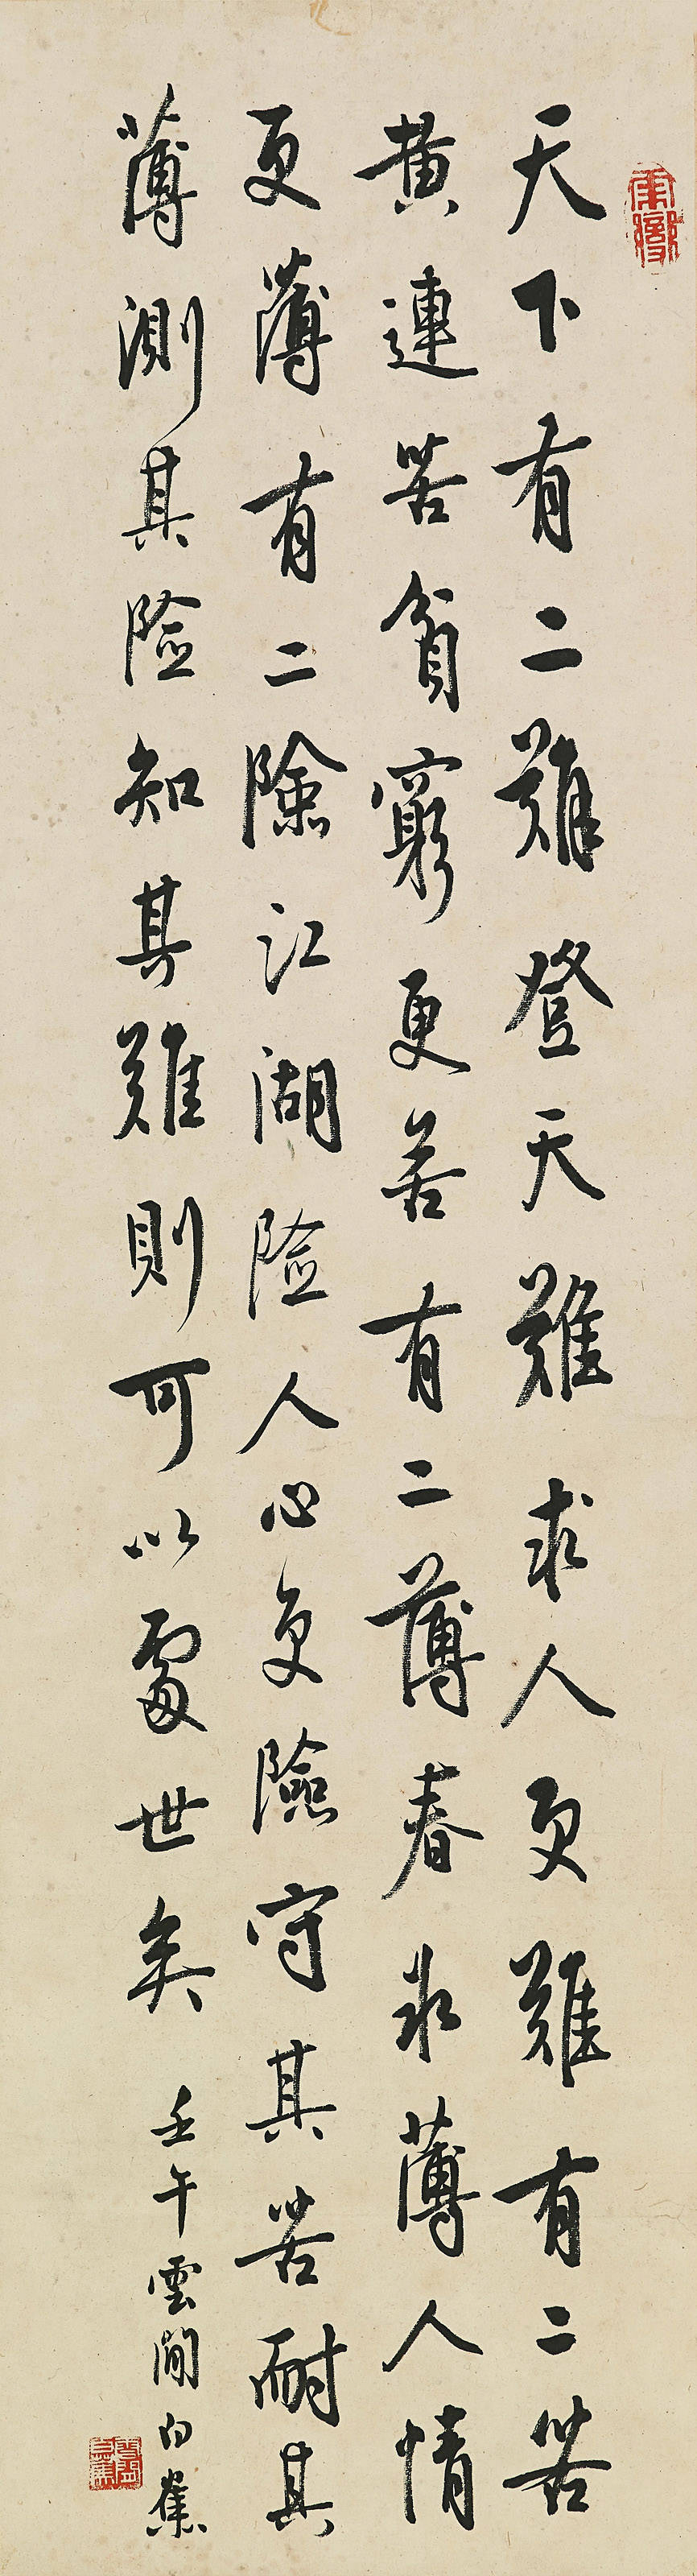 天下有二難登天難求人更難有二苦
黄連苦貧窮更苦有二薄春氷薄人情
更薄有二險江湖險人心更險守其苦耐其
薄測其險知其難則可以處世矣
壬午雲間白蕉